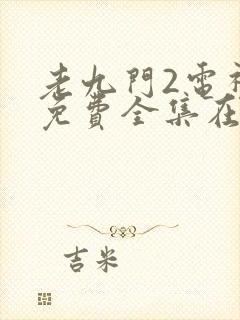 老九門2雷
免費全集在
吉米